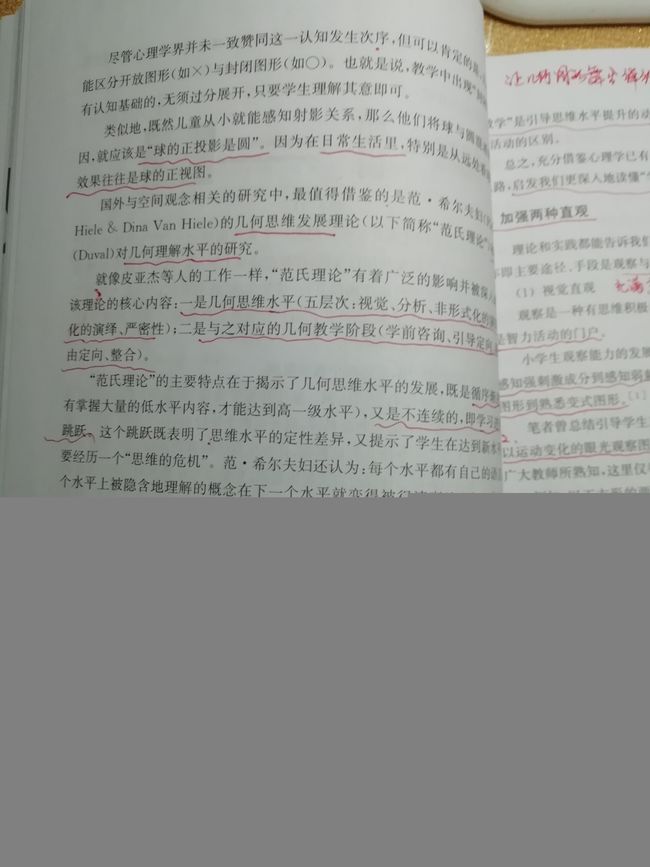 尽管心理学界并未一致赞同这一认知发生次序,但可以肯定的是,
能区分开放图形(如×)与封闭图形(如○)。也就是说,教学中出现“
有认知基础的,无须过分展开,只要学生理解其意即可。
类似地,既然儿童从小就能感知射影关系,那么他们将球与圆
因,就应该是“球的正投影是圆”。因为在日常生活里,特别是从远处看
效果往往是球的正视图。
国外与空间观念相关的研究中,最值得借鉴的是范·希尔夫妇(
Hiele & Dina Van Hiele)的几何思维发展理论(以下简称“范氏理论”)
(Duval)对几何理解水平的研究。
就像皮亚杰等人的工作一样,“范氏理论”有着广泛的影响并被深入
该理论的核心内容:一是几何思维水平(五层次:视觉、分析、非形式化的
化的演绎、严密性);二是与之对应的几何教学阶段(学前咨询、引导定向、
由定向、整合)。
“范氏理论”的主要特点在于揭示了几何思维水平的发展,既是循序渐
有掌握大量的低水平内容,才能达到高一级水平),又是不连续的,即学习
跳跃。这个跳跃既表明了思维水平的定性差异,又提示了学生在达到新水
要经历一个“思维的危机”。范·希尔夫妇还认为:每个水平都有自己的语
个水平上被隐含地理解的概念在下一个水平就变得被
学”是引导思维水平提升的动
活动的区别。
总之,充分借鉴心理学已有
路,启发我们更深入地读懂“
加强两种直观
理论和实践都能告诉我们
即主要途径、手段是观察与
(1) 视觉直观
观察是一种有思维积极
是智力活动的门户。
小学生观察能力的发展
感知强刺激成分到感知弱
图形到熟悉变式图形。(1)
笔者曾总结引导学生
以运动变化的眼光观察图
广大教师所熟知,这里仅